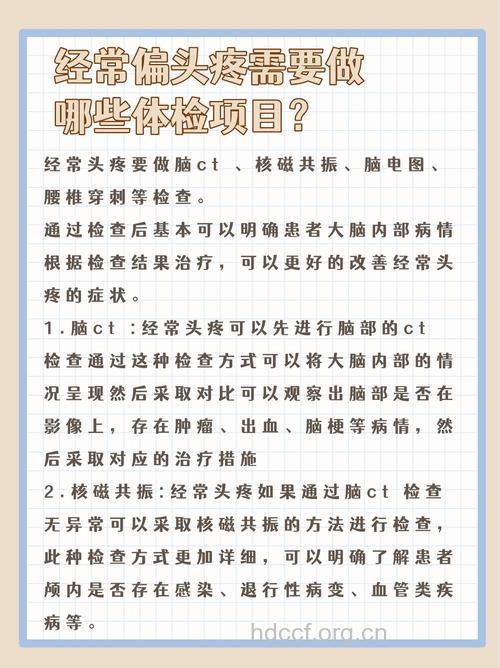 经常偏头疼需要做
哪些体检项目?
经常头疼要做脑ct 、核磁共振、脑电图、
腰椎穿刺等检查。
通过检查后基本可以明确患者大脑内部病情
根据检查结果治疗，可以更好的改善经常头
疼的症状。
1.脑ct :经常头疼可以先进行脑部的ct
检查通过这种检查方式可以将大脑内部的情
况呈现然后采取对比可以观察出脑部是否在
影像上，存在肿瘤、出血、脑梗等病情，然
后采取对应的治疗措施
2.核磁共振:经常头疼如果通过脑ct 检查
无异常可以采取核磁共振的方法进行检查，
此种检查方式更加详细，可以明确了解患者
颅内是否存在感染、退行性病变、血管类疾
病等。
hdccf.org.cn